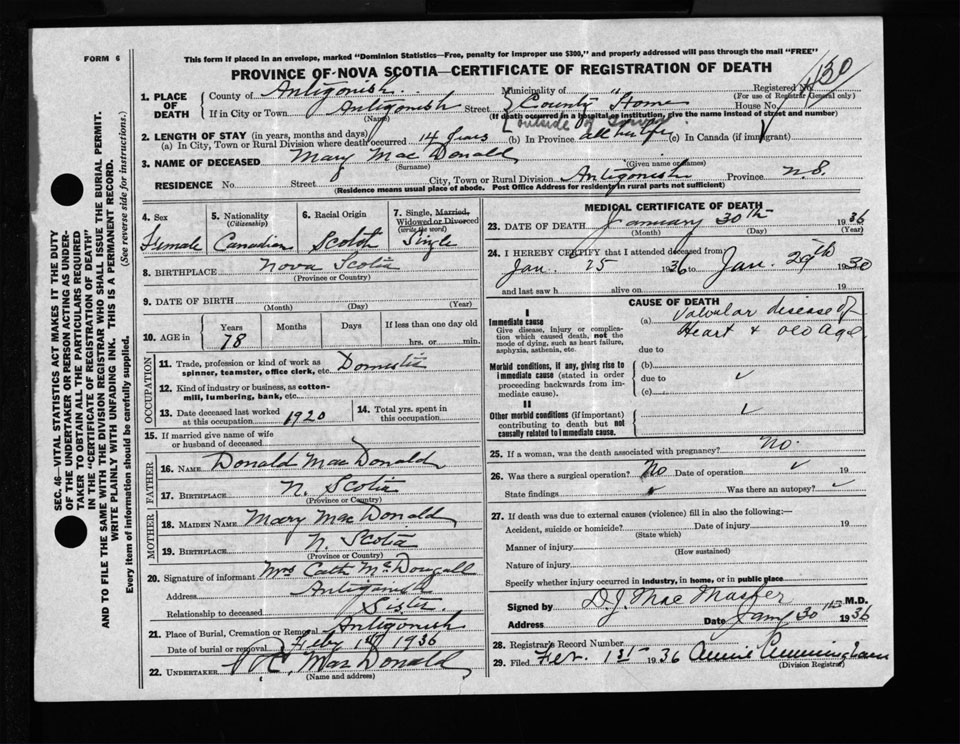 FORM 6
This form if placed in an envelope, marked "Dominion Statistics—Free, penalty for improper use $300," and properly addressed will pass through the mail "FREE"
PROVINCE OF NOVA SCOTIA—CERTIFICATE OF REGISTRATION OF DEATH
Registered No. 130
(For use of Registrar General only)
1. PLACE OF DEATH
County of Antigonish Municipality of "
If in City or Town Antigonish Street County Home House No.
(Name) (If death occurred in a hospital or institution, give the name instead of street and number)
outside of Town
2. LENGTH OF STAY (in years, months and days)
(a) In City, Town or Rural Division where death occurred 14 years (b) In Province all her life (c) In Canada (if immigrant)
3. NAME OF DECEASED Mary Mac Donald
(Surname) (Given name or names)
RESIDENCE No. Street City, Town or Rural Division Antigonish Province N.S.
(Residence means usual place of abode. Post Office Address for residents in rural parts not sufficient)
4. Sex Female
5. Nationality (Citizenship) Canadian
6. Racial Origin Scotch
7. Single, Married, Widowed or Divorced (write the word) Single
8. BIRTHPLACE Nova Scotia
(Province or Country)
9. DATE OF BIRTH
(Month) (Day) (Year)
10. AGE in Years Months Days If less than one day old
78 hrs. or min.
OCCUPATION
11. Trade, profession or kind of work as spinner, teamster, office clerk, etc. Domestic
12. Kind of industry or business, as cotton-mill, lumbering, bank, etc.
13. Date deceased last worked at this occupation 1920
14. Total yrs. spent in this occupation
15. If married give name of wife or husband of deceased
FATHER
16. NAME Donald Mac Donald
17. BIRTHPLACE N. Scotia
(Province or Country)
MOTHER
18. MAIDEN NAME Mary Mac Donald
19. BIRTHPLACE N. Scotia
(Province or Country)
20. Signature of informant Mrs Cath McDougall
Address Antigonish
Relationship to deceased Sister
21. Place of Burial, Cremation or Removal Antigonish
Date of burial or removal Feby 1st 1936
22. UNDERTAKER Mac Donald
(Name and address)
MEDICAL CERTIFICATE OF DEATH
23. DATE OF DEATH January 30th 1936
(Month) (Day) (Year)
24. I HEREBY CERTIFY that I attended deceased from
Jan. 25 1936 to Jan. 29th 1930
and last saw h alive on 19
CAUSE OF DEATH
I
Immediate cause
Give disease, injury or complication which caused death, not the mode of dying, such as heart failure, asphyxia, asthenia, etc.
(a) Valvular disease of
Heart & old Age
due to
Morbid conditions, if any, giving rise to immediate cause (stated in order proceeding backwards from immediate cause).
(b)
due to ✓
(c)
II
Other morbid conditions (if important) contributing to death but not causally related to immediate cause. ✓
25. If a woman, was the death associated with pregnancy? No.
26. Was there a surgical operation? No Date of operation ✓ 19
State findings ✓ Was there an autopsy? ✓
27. If death was due to external causes (violence) fill in also the following:—
Accident, suicide or homicide? Date of injury 19
(State which)
Manner of injury
(How sustained)
Nature of injury
Specify whether injury occurred in industry, in home, or in public place
Signed by D.J. Mac Master M.D.
Address Date Jany 30th 1936
28. Registrar's Record Number
29. Filed Feb. 1st 1936 Annie Cunningham
(Division Registrar)
SEC. 46—VITAL STATISTICS ACT MAKES IT THE DUTY
OF THE UNDERTAKER OR PERSON ACTING AS UNDERTAKER TO OBTAIN ALL THE PARTICULARS REQUIRED
IN THE "CERTIFICATE OF REGISTRATION OF DEATH"
AND TO FILE THE SAME WITH THE DIVISION REGISTRAR WHO SHALL ISSUE THE BURIAL PERMIT.
WRITE PLAINLY WITH UNFADING INK. THIS IS A PERMANENT RECORD.
Every item of information should be carefully supplied. (See reverse side for instructions.)